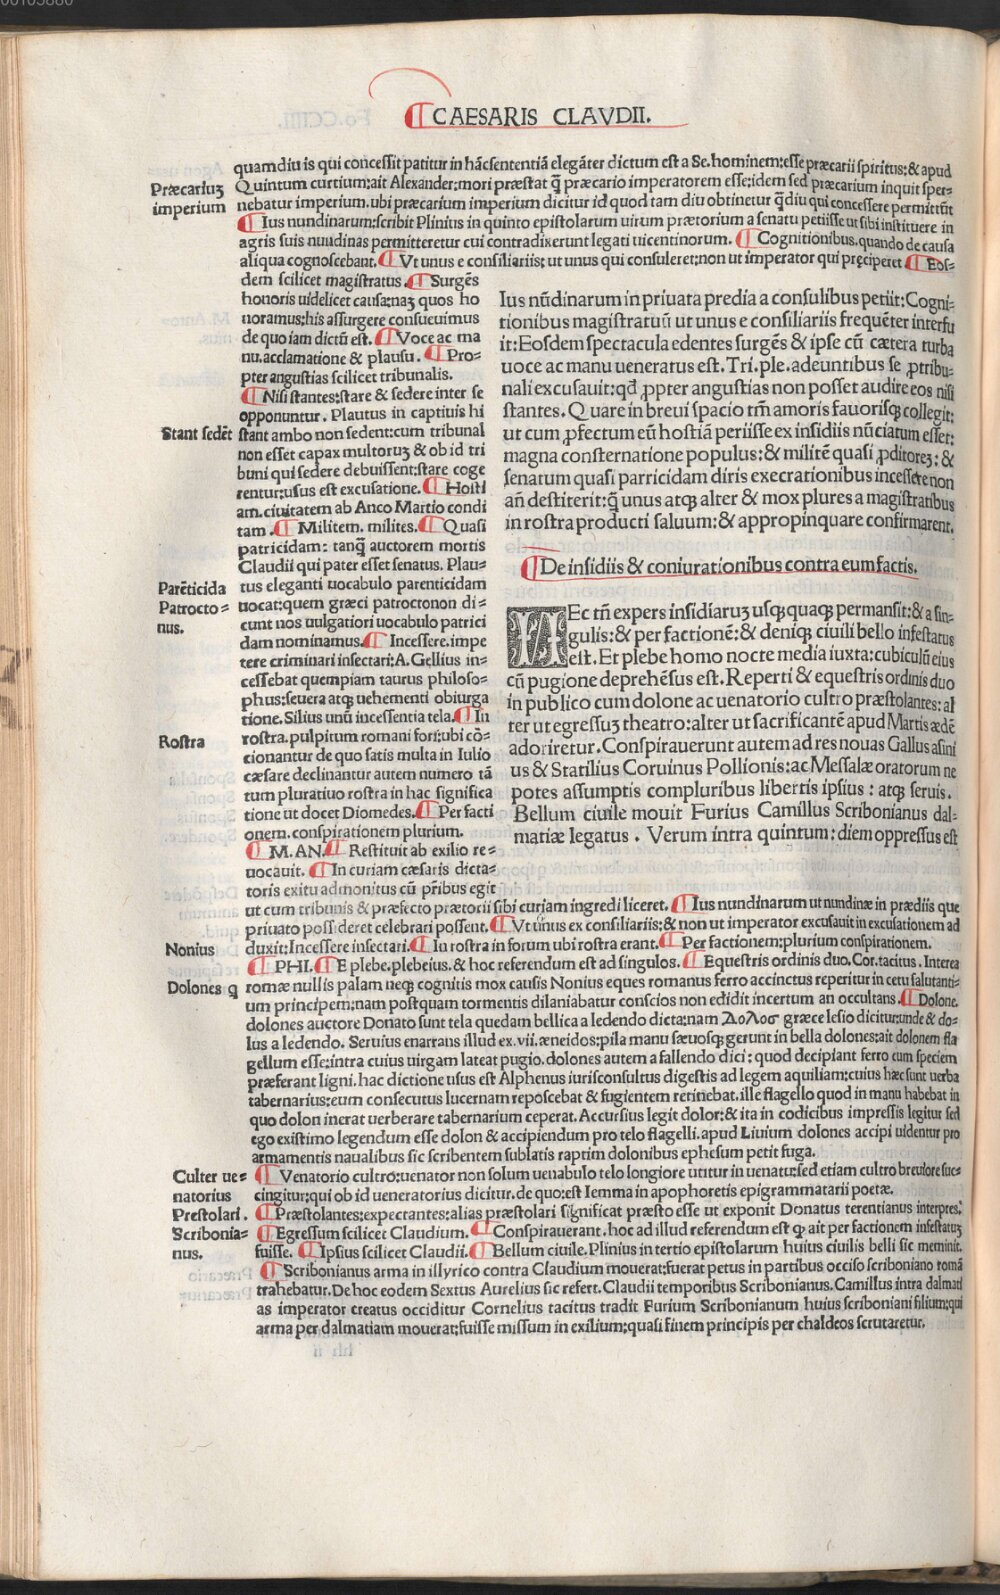 00105880
¶CAESARIS CLAVDII.
quamdiu is qui concessit patitur in hãc sententiã elegãter dictum est a Se. hominem: esse præcarii spiritus: & apud
Præcariuʒ Quintum curtium: ait Alexander: mori præstat q̃ præcario imperatorem esse: idem sed præcarium inquit sper=
imperium nebatur imperium. ubi præcarium imperium dicitur id quod tam diu obtinetur q̃diu qui concessere permittũt
¶Ius nundinarum: scribit Plinius in quinto epistolarum uirum prætorium a senatu petiisse ut sibi instituere in
agris suis nundinas permitteretur cui contradixerunt legati uicentinorum. ¶Cognitionibus. quando de causa
aliqua cognoscebant. ¶Vt unus e consiliariis: ut unus qui consuleret: non ut imperator qui pręciperet ¶Eos=
dem scilicet magistratus. ¶Surgẽs
honoris uidelicet causa: naʒ quos ho
noramus: his assurgere consueuimus
de quo iam dictũ est. ¶Voce ac ma
nu. acclamatione & plausu. ¶Pro=
pter angustias scilicet tribunalis.
¶Nisi stantes: stare & sedere inter se
opponuntur. Plautus in captiuis hi
Stant sedẽt stant ambo non sedent: cum tribunal
non esset capax multoruʒ & ob id tri
buni qui sedere debuissent: stare coge
rentur: usus est excusatione. ¶Hosti
am. ciuitatem ab Anco Martio condi
tam. ¶Militem. milites. ¶Quasi
patricidam: tanq̃ auctorem mortis
Claudii qui pater esset senatus. Plau=
Parẽticida tus eleganti uocabulo parenticidam
Patrocto= uocat: quem græci patroctonon di=
nus. cunt nos uulgatiori uocabulo patrici
dam nominamus. ¶Incessere. impe
tere criminari insectari: A. Gellius in=
cessebat quempiam taurus philoso=
phus: seuera atqʒ uehementi obiurga
tione. Silius unũ incessentia tela. ¶In
Rostra rostra. pulpitum romani fori: ubi cõ=
cionantur de quo satis multa in Iulio
cæsare declinantur autem numero tã
tum pluratiuo rostra in hac significa
tione ut docet Diomedes. ¶Per facti
onem. conspirationem plurium.
¶M. AN. ¶Restituit ab exilio re=
uocauit. ¶In curiam cæsaris dicta=
toris exitu admonitus cũ pr̃ibus egit
Ius nũdinarum in priuata predia a consulibus petiit: Cogni=
tionibus magistratuũ ut unus e consiliariis frequẽter interfu
it: Eosdem spectacula edentes surgẽs & ipse cũ cætera turba
uoce ac manu ueneratus est. Tri. ple. adeuntibus se ꝓ tribu=
nali excusauit: qđ ꝓpter angustias non posset audire eos nisi
stantes. Quare in breui spacio tm̃ amoris fauorisqʒ collegit:
ut cum ꝓfectum eũ hostiã periisse ex insidiis nũciatum esset:
magna consternatione populus: & militẽ quasi ꝓditoreʒ: &
senatum quasi parricidam diris execrationibus incessere non
añ destiterit: q̃ unus atqʒ alter & mox plures a magistratibus
in rostra producti saluum: & appropinquare confirmarent.
¶De insidiis & coniurationibus contra eum factis.
NEc tñ expers insidiaruʒ usqʒquaqʒ permansit: & a sin=
gulis: & per factionẽ: & deniqʒ ciuili bello infestatus
est. Et plebe homo nocte media iuxta: cubiculũ eius
cũ pugione deprehẽsus est. Reperti & equestris ordinis duo
in publico cum dolone ac uenatorio cultro præstolantes: al
ter ut egressuʒ theatro: alter ut sacrificantẽ apud Martis ædẽ
adoriretur. Conspirauerunt autem ad res nouas Gallus asini
us & Statilius Coruinus Pollionis: ac Messalæ oratorum ne
potes assumptis compluribus libertis ipsius: atqʒ seruis.
Bellum ciuile mouit Furius Camillus Scribonianus dal=
matiæ legatus. Verum intra quintum: diem oppressus est
ut cum tribunis & præfecto prætorii sibi curiam ingredi liceret. ¶Ius nundinarum ut nundinæ in prædiis que
priuato possideret celebrari possent. ¶Vt unus ex consiliariis: & non ut imperator excusauit in excusationem ad
Nonius duxit: Incessere insectari. ¶In rostra in forum ubi rostra erant. ¶Per factionem: plurium conspirationem.
¶PHI. ¶E plebe. plebeius. & hoc referendum est ad singulos. ¶Equestris ordinis duo. Cor. tacitus. Interea
Dolones q romæ nullis palam neqʒ cognitis mox causis Nonius eques romanus ferro accinctus reperitur in cetu salutanti=
um principem: nam postquam tormentis dilaniabatur conscios non edidit incertum an occultans. ¶Dolone.
dolones auctore Donato sunt tela quedam bellica a ledendo dicta: nam Δολοσ græce lesio dicitur: unde & do=
lus a ledendo. Seruius enarrans illud ex. vii. æneidos: pila manu sæuosqʒ gerunt in bella dolones: ait dolonem fla
gellum esse: intra cuius uirgam lateat pugio. dolones autem a fallendo dici: quod decipiant ferro cum speciem
præferant ligni. hac dictione usus est Alphenus iurisconsultus digestis ad legem aquiliam: cuius hæc sunt uerba
tabernarius: eum consecutus lucernam reposcebat & fugientem retinebat. ille flagello quod in manu habebat in
quo dolon inerat uerberare tabernarium ceperat. Accursius legit dolor: & ita in codicibus impressis legitur sed
ego existimo legendum esse dolon & accipiendum pro telo flagelli. apud Liuium dolones accipi uidentur pro
armamentis naualibus sic scribentem sublatis raptim dolonibus ephesum petit fuga.
Culter ue= ¶Venatorio cultro: uenator non solum uenabulo telo longiore utitur in uenatu: sed etiam cultro breuiore suc=
natorius cingitur: qui ob id ueneratorius dicitur. de quo: est lemma in apophoretis epigrammatarii poetæ.
Prestolari. ¶Præstolantes: expectantes: alias præstolari significat præsto esse ut exponit Donatus terentianus interpres.
Scribonia= ¶Egressum scilicet Claudium. ¶Conspirauerant. hoc ad illud referendum est qꝫ ait per factionem infestatuʒ
nus. fuisse. ¶Ipsius scilicet Claudii. ¶Bellum ciuile. Plinius in tertio epistolarum huius ciuilis belli sic meminit.
¶Scribonianus arma in illyrico contra Claudium mouerat: fuerat petus in partibus occiso scriboniano romã
trahebatur. De hoc eodem Sextus Aurelius sic refert. Claudii temporibus Scribonianus. Camillus intra dalmati
as imperator creatus occiditur Cornelius tacitus tradit Furium Scribonianum huius scriboniani filium: qui
arma per dalmatiam mouerat: fuisse missum in exilium: quasi finem principis per chaldeos scrutaretur.